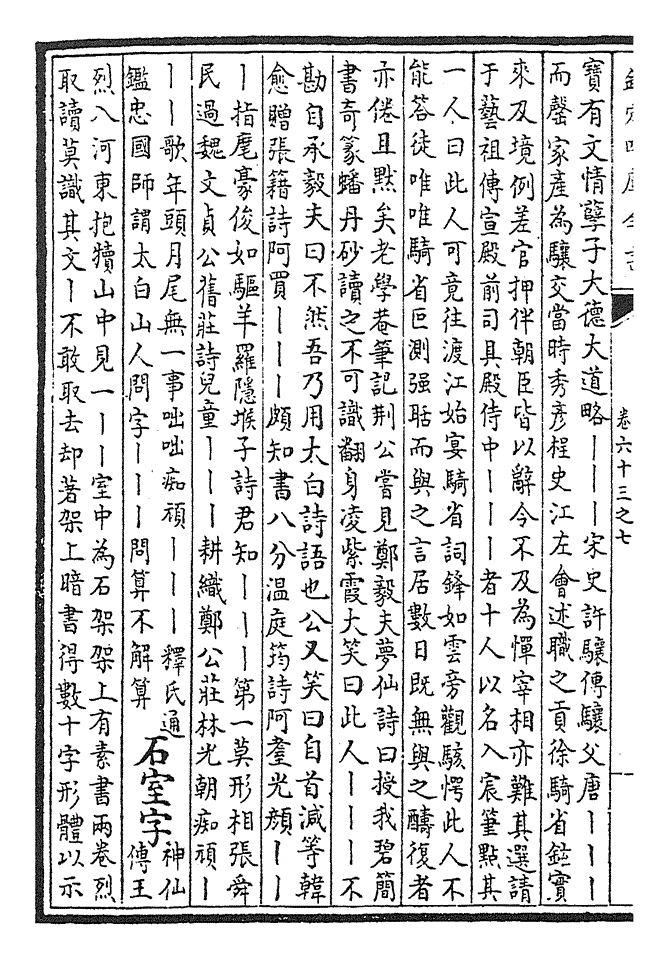 欽定四庫全書
卷六十三之七
寶有文情孽子大德大道略丨丨丨宋史許驤傳驤父唐丨丨丨
而罄家產為驤交當時秀彥桯史江左會述職之貢徐騎省鉉實
來及境例差官押伴朝臣皆以辭令不及為憚宰相亦難其選請
于藝祖傳宣殿前司具殿侍中丨丨丨者十人以名入宸筆點其
一人曰此人可竟往渡江始宴騎省詞鋒如雲旁觀駭愕此人不
能答徒唯唯騎省叵測强聒而與之言居數日既無與之醻復者
亦倦且默矣老學菴筆記荆公嘗見鄭毅夫夢仙詩曰授我碧簡
書奇篆蟠丹砂讀之不可識翻身凌紫霞大笑曰此人丨丨丨不
勘自承毅夫曰不然吾乃用太白詩語也公又笑曰自首減等韓
愈贈張籍詩阿買丨丨丨頗知書八分温庭筠詩阿耋光顔丨丨
丨指麾豪俊如驅羊羅隱堠子詩君知丨丨丨第一莫形相張舜
民過魏文貞公舊莊詩兒童丨丨丨耕織鄭公莊林光朝痴頑丨
丨丨歌年頭月尾無一事咄咄痴頑丨丨丨釋氏通
鑑忠國師謂太白山人問字丨丨丨問算不解算
石室字
神仙
傳王
烈入河東抱犢山中見一丨丨室中為石架架上有素書兩卷烈
取讀莫識其文丨不敢取去却著架上暗書得數十字形體以示